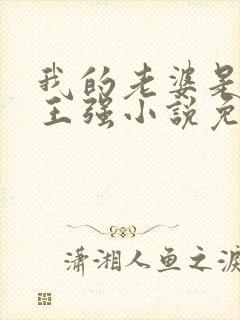 我的老婆是
王强小说免
潇湘人鱼之泪